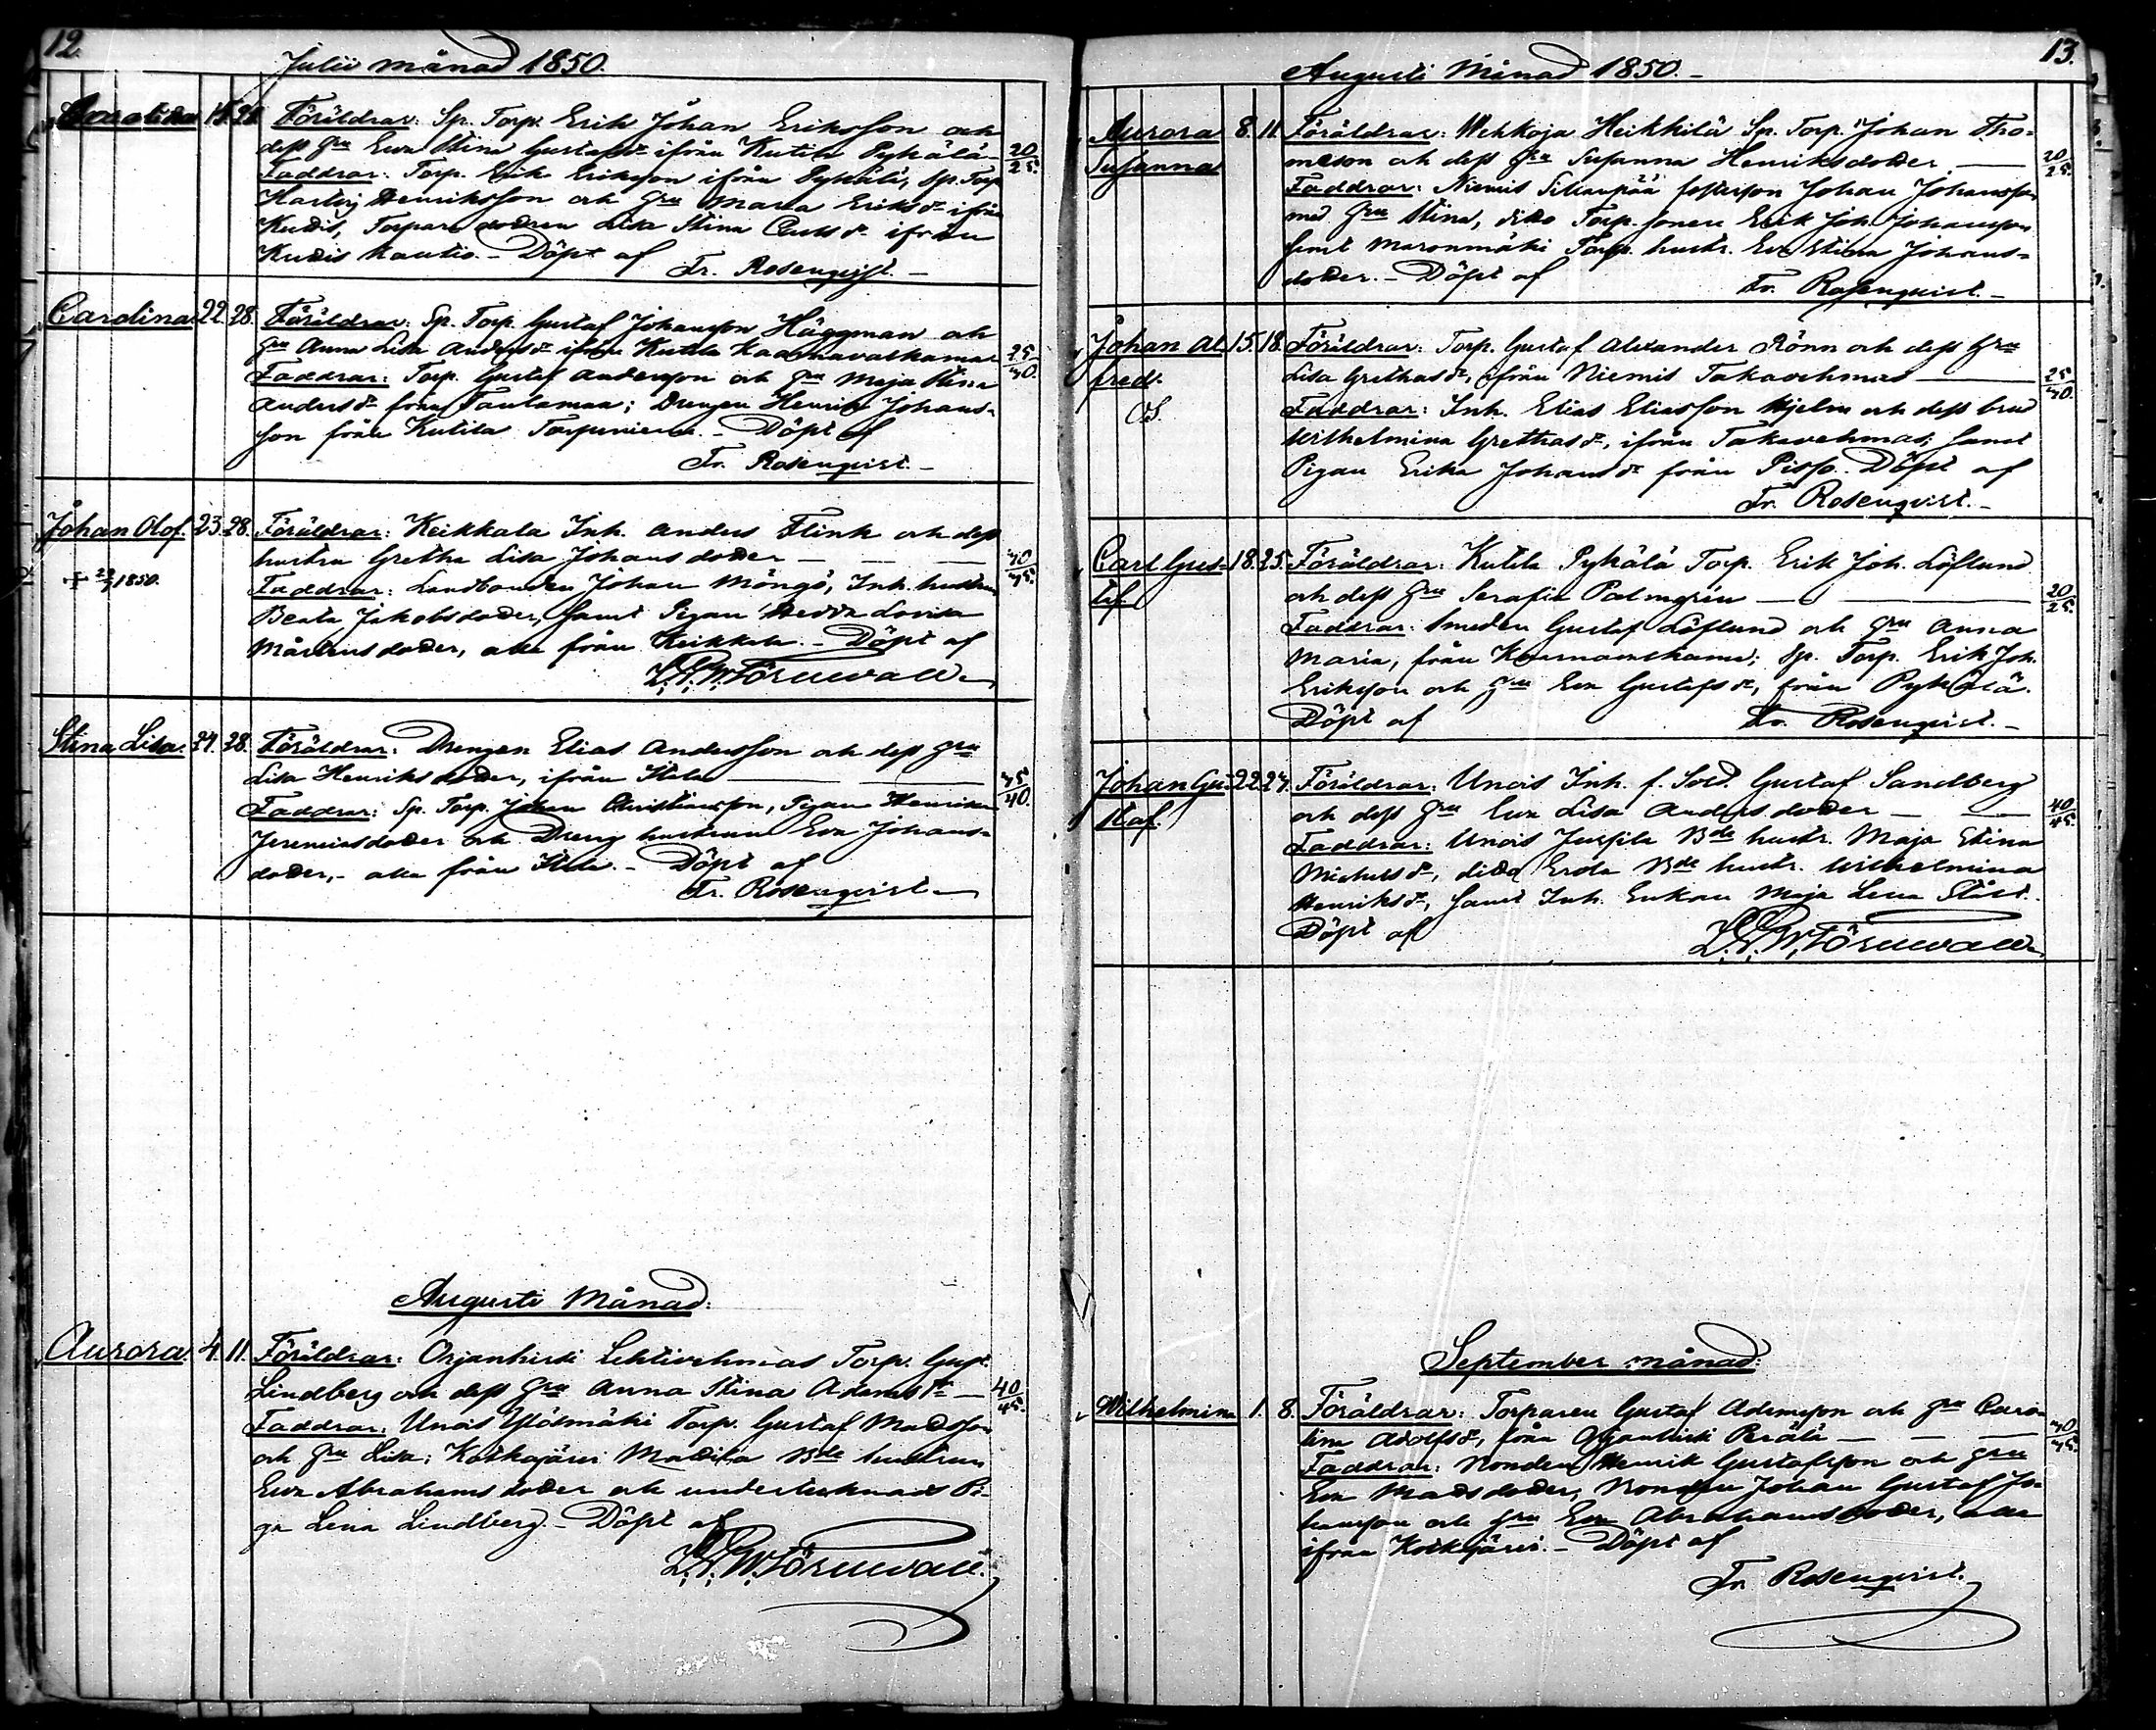 12.
Julii månad 1850.
Carolina 15. 21. Föräldrar: Sp. Torp. Erik Johan Eriksson och
dess hru Eva Stina Gustafsdr ifrån Kutila Pyhälä 20/25.
Faddrar: Torp. Erik Eriksson ifrån Pyhälä, Sp. Torp
Hartvig Henriksson och hru Maria Eriksdr ifrån
Kudis, Torpare dodren Lisa Stina Carlsdr ifrån
Kudis Kautio. – Döpt af Fr. Rosenqvist. –
Carolina 22. 28. Föräldrar: Sp. Torp. Gustaf Johansson Häggman och
hru Anna Lisa Andersdr ifrån Kutila 25/30.
Faddrar: Torp. Gustaf Andersson och hru Maja Stina
Andersdr från Tautamaa; Drengen Henrik Johans-
son från Kutila. – Döpt af
Fr. Rosenqvist. –
Johan Olof. 23. 28. Föräldrar: Keikkala Inh. Anders Flink och dess
hustru Gretha Lisa Johansdotter — 30/35.
+ 29/7 1850.
Faddrar: Landbonden Johan Möngö, Inh. hustrun
Beata Jakobsdotter, samt Pigan Hedda Lovisa
Mårtensdotter, alla från Keikkala. – Döpt af
Törnwall
Stina Lisa. 24. 28. Föräldrar: Drengen Elias Andersson och dess hru
Lisa Henriksdotter, ifrån Itala — 35/40.
Faddrar: Sp. Torp. Johan Christiansson, Pigan Henrika
Jeremiasdotter och Dreng hustrun Eva Johans-
dotter, – alla från Itala. – Döpt af
Fr. Rosenqvist
Augusti Månad.
Aurora. 4. 11. Föräldrar: Orjanhirsi Lehtivehmas Torp. Gust.
Lindberg och dess hru Anna Stina Adamsdr — 40/45.
Faddrar: Unois Torp. Gustaf Madsson
och hru Lisa; Koskajärvi Madila Bde hustrun
Eva Abrahamsdotter och undertecknads Pi-
ga Lena Lindberg. – Döpt af
Törnwall.
13.
Augusti Månad 1850. –
Aurora 8. 11. Föräldrar: Wehkoja Heikkilä Sp. Torp. Johan Tho-
Susanna
masson och dess hru Susanna Henriksdotter — 20/25.
Faddrar: Niemis fosterson Johan Johansson
med hru Stina, dito Torp. sonen Erik Joh. Johansson
samt Maronmäki Torp. hustr. Eva Stina Johans-
dotter. – Döpt af Fr. Rosenqvist. –
Johan Al- 15. 18. Föräldrar: Torp. Gustaf Alexander Rönn och dess hru
fred.
Lisa Grethasdr, ifrån Niemis Takavehmas — 25/30.
Faddrar: Inh. Elias Eliasson Hjelm och dess brud
Wilhelmina Grethasdr, ifrån Takavehmas; samt
Pigan Erika Johansdr från Pispa. Döpt af
Fr. Rosenqvist. –
Carl Gus- 18. 25. Föräldrar: Kutila Pyhälä Torp. Erik Joh. Löflund
taf.
och dess hru Serafia Palmgrén — 20/25.
Faddrar: Smeden Gustaf Löflund och hru Anna
Maria, från; Sp. Torp. Erik Joh.
Eriksson och hru Eva Gustafsdr, från Pyhälä.
Döpt af Fr. Rosenqvist. –
Johan Gu- 22. 27. Föräldrar: Unois Inh. f. Sold. Gustaf Sandberg
staf.
och dess hru Eva Lisa Andersdotter — 40/45.
Faddrar: Unois Jussila Bde hustr. Maja Stina
Michelsdr, dito Erola Bde hustr. Wilhelmina
Henriksdr, samt Inh. Enkan Maja Lena Stålt.
Döpt af Törnwall
September månad:
Wilhelmina 1. 8. Föräldrar: Torparen Gustaf Adamsson och hru Caro-
lina Adolfsdr, från Orjanhirsi Perälä — 30/35.
Faddrar: Bonden Henrik Gustafsson och hru
Eva Madsdotter, Bonden Johan Gustaf Jo-
hansson och hru Eva Abrahamsdotter, alla
ifrån Koskajärvi. – Döpt af
Fr. Rosenqvist.